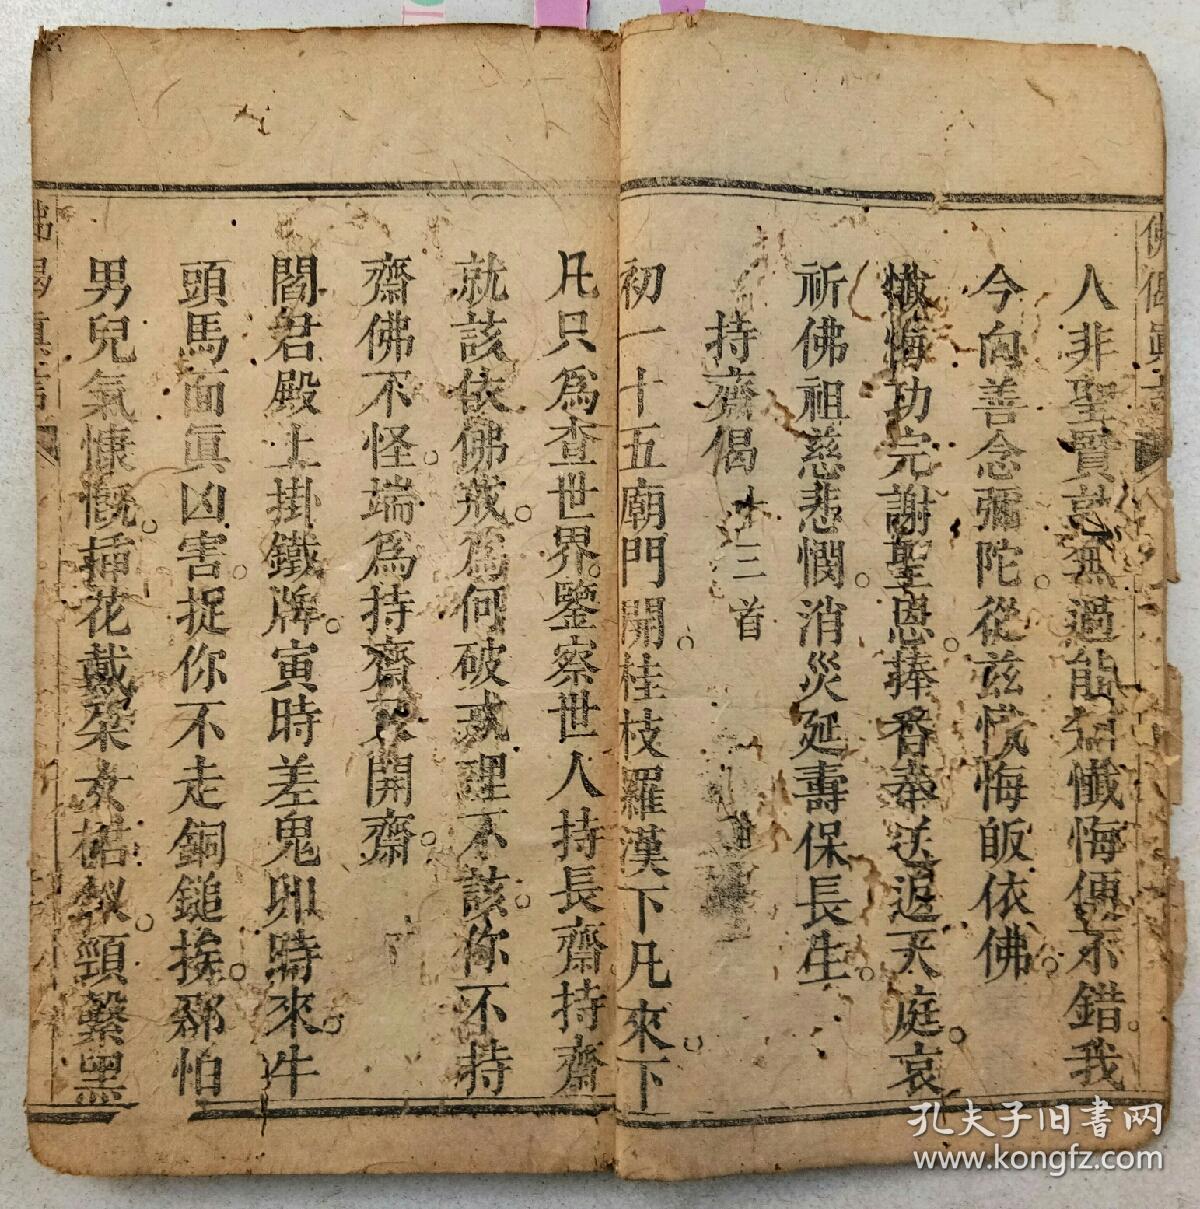 佛偈眞言
人非聖賢孰無過能知懺悔便不錯。我
今向善念彌陀。從兹懺悔皈依佛。
懺悔功完謝聖恩。捧香奉送返天庭。哀
祈佛祖慈悲憫。消災延壽保長生。
持齋偈 十三首
初一十五廟門開。桂枝羅漢下凡來。下
凡只爲查世界。鑒察世人持長齋。持齋
就該依佛戒。爲何破戒理不該。你不持
齋佛不怪。端爲持齋又開齋。
閻君殿上掛鐵牌。寅時差鬼卯時來。牛
頭馬面眞凶害。捉你不走銅鎚挨。鄒怕
男兒氣慷慨。插花戴朶女裙釵。頸繫黑
佛偈眞言
孔夫子旧书网
www.kongfz.com